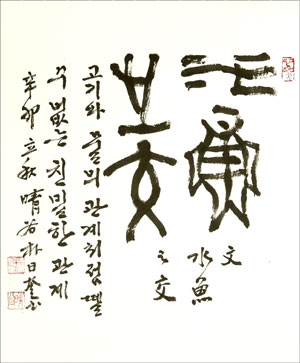 水魚
之交
文
水魚
之交
고기와 물의 관계처럼 뗄
수 없는 친밀한 관계
辛卯 立秋 晴谷 朴日奎書